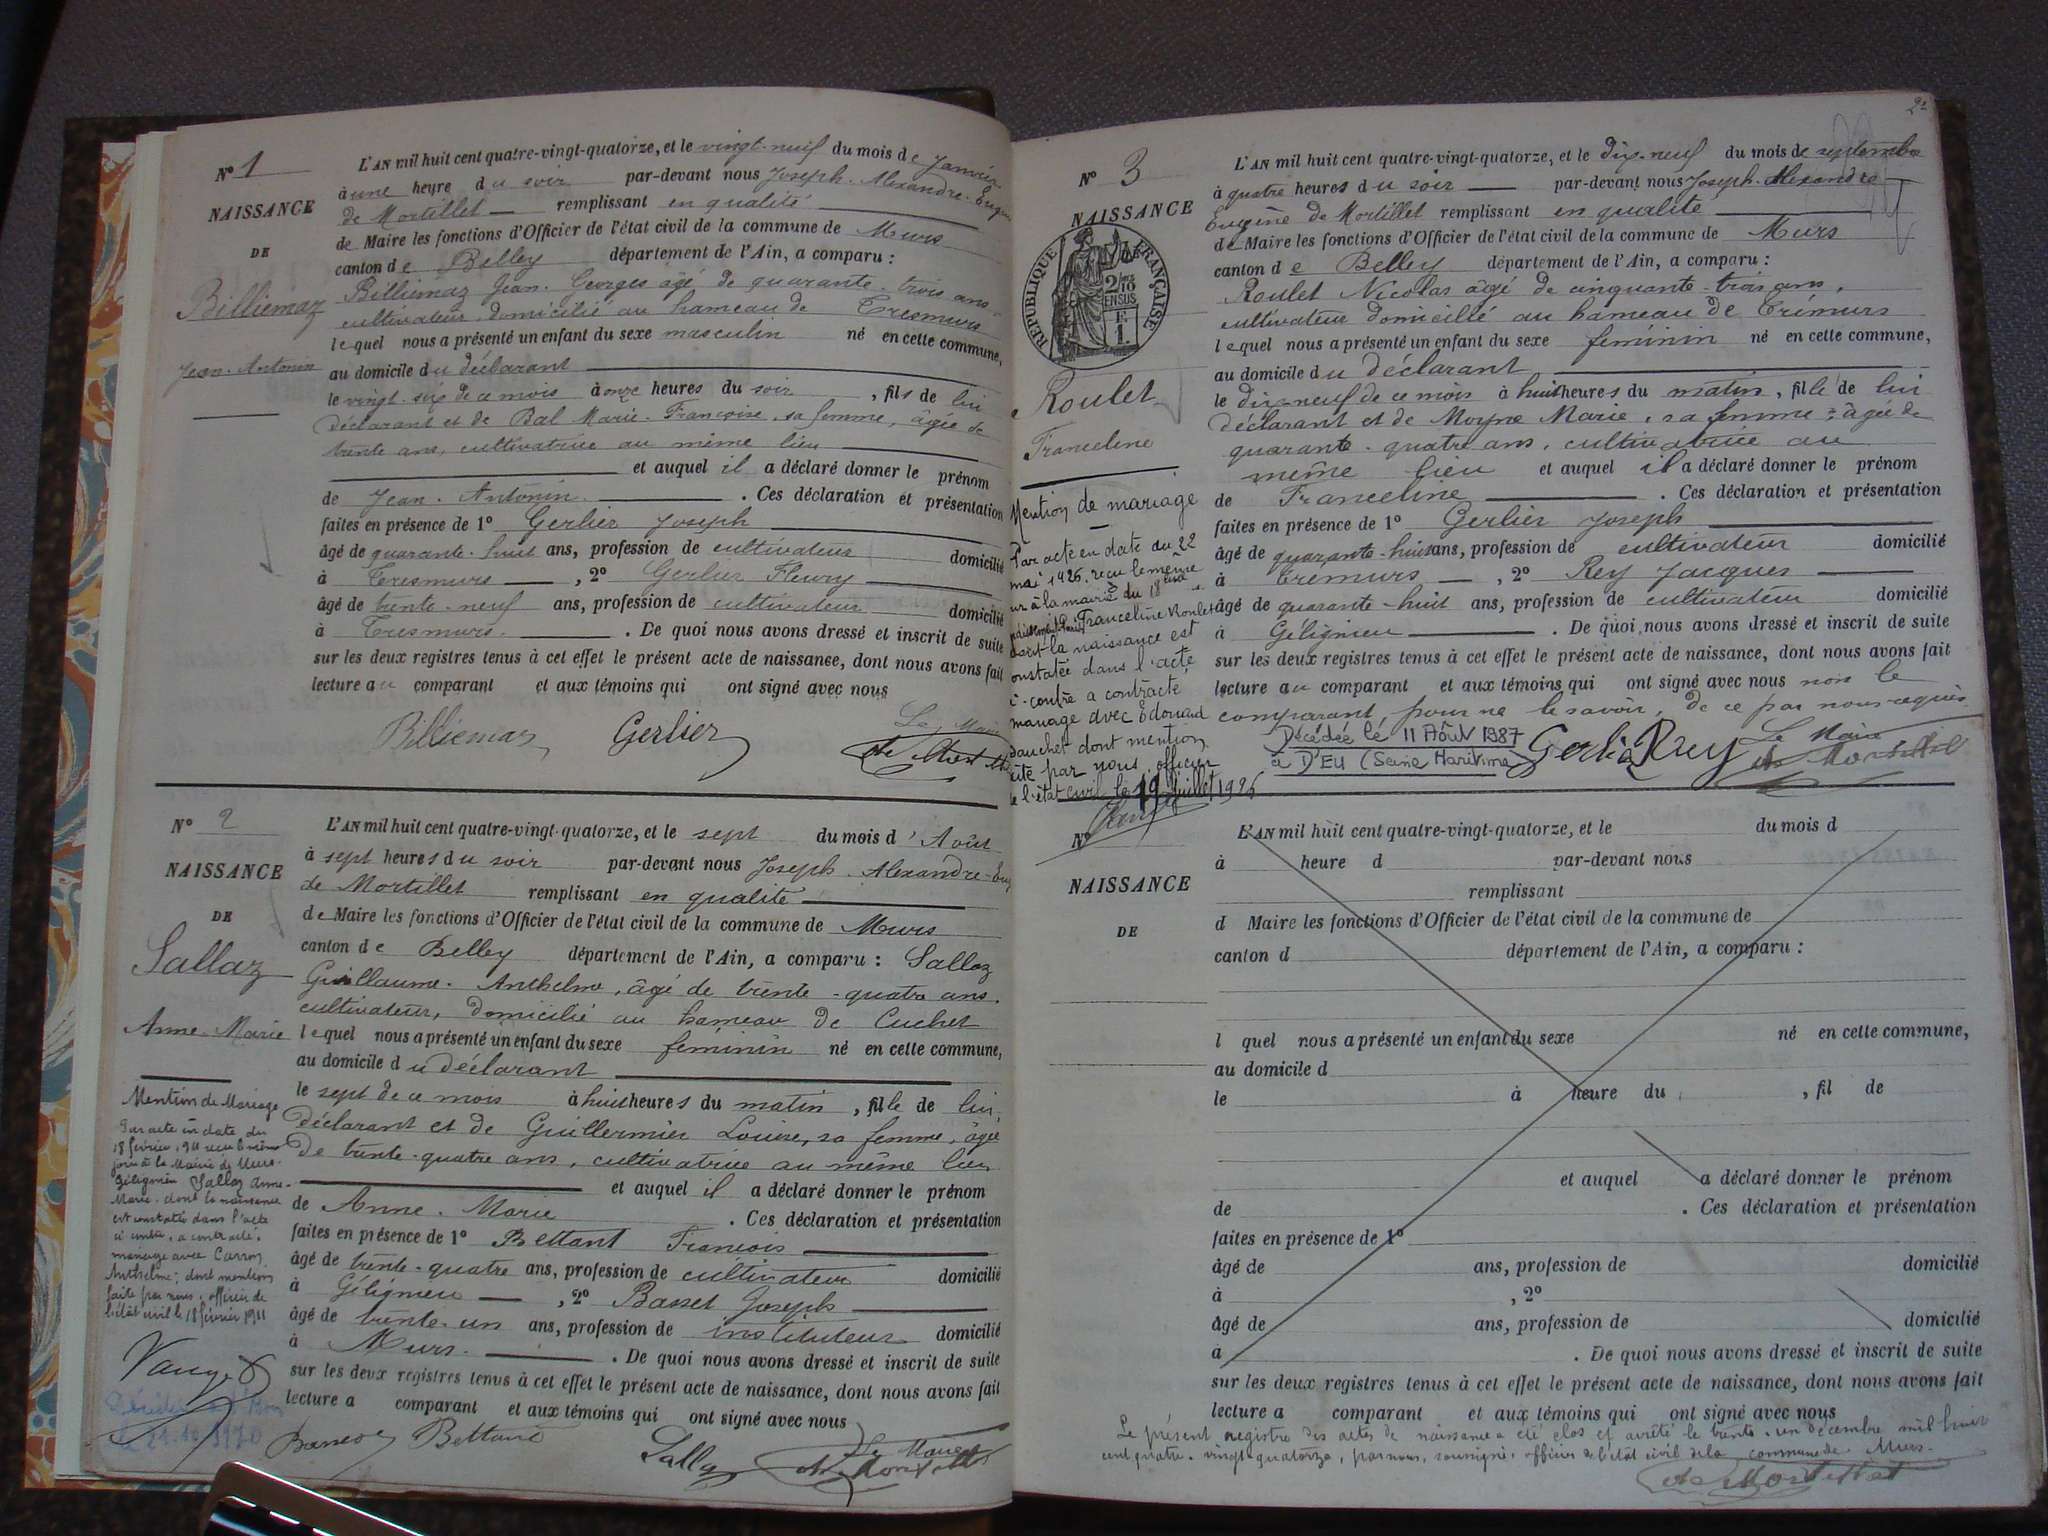 Nº 1
NAISSANCE
DE
Billiemaz
Jean-Antonin
L'AN mil huit cent quatre-vingt-quatorze, et le vingt-neuf du mois de Janvier
à une heure du soir par-devant nous Joseph-Alexandre-Eugène
de Mortillet remplissant en qualité
de Maire les fonctions d'Officier de l'état civil de la commune de Murs
canton de Belley département de l'Ain, a comparu :
Billiemaz Jean-Georges âgé de quarante-trois ans
cultivateur, domicilié au hameau de Tresmurs
lequel nous a présenté un enfant du sexe masculin né en cette commune,
au domicile du déclarant
le vingt-six de ce mois à onze heures du soir, fils de lui
déclarant et de Bal Marie-Françoise, sa femme, âgée de
trente ans, cultivatrice au même lieu
et auquel il a déclaré donner le prénom
de Jean-Antonin. Ces déclaration et présentation
faites en présence de 1º Gerlier Joseph
âgé de quarante-huit ans, profession de cultivateur domicilié
à Tresmurs, 2º Gerlier Fleury
âgé de trente-neuf ans, profession de cultivateur domicilié
à Tresmurs. De quoi nous avons dressé et inscrit de suite
sur les deux registres tenus à cet effet le présent acte de naissance, dont nous avons fait
lecture au comparant et aux témoins qui ont signé avec nous
Billiemaz Gerlier Le Maire
Nº 2
NAISSANCE
DE
Sallaz
Anne-Marie
Mention de Mariage
Par acte en date du
18 février 1911 reçu le même
jour à la Mairie de Murs-
Gélignieu Sallaz Anne-
Marie dont la naissance
est constatée dans l'acte
ci contre, a contracté
mariage avec Carron
Anthelme; dont mention
faite par nous, officier de
l'état civil le 18 février 1911
L'AN mil huit cent quatre-vingt-quatorze, et le sept du mois d'Août
à sept heures du soir par-devant nous Joseph-Alexandre-Eug
de Mortillet remplissant en qualité
de Maire les fonctions d'Officier de l'état civil de la commune de Murs
canton de Belley département de l'Ain, a comparu : Sallaz
Guillaume-Anthelme, âgé de trente-quatre ans
cultivateur, domicilié au hameau de Cuchet
lequel nous a présenté un enfant du sexe féminin né en cette commune,
au domicile du déclarant
le sept de ce mois à huit heures du matin, fille de lui,
déclarant et de Guillermier Louise, sa femme, âgée
de trente-quatre ans, cultivatrice au même lieu
et auquel il a déclaré donner le prénom
de Anne-Marie. Ces déclaration et présentation
faites en présence de 1º Bettant François
âgé de trente-quatre ans, profession de cultivateur domicilié
à Gélignieu, 2º Basset Joseph
âgé de trente-un ans, profession de instituteur domicilié
à Murs. De quoi nous avons dressé et inscrit de suite
sur les deux registres tenus à cet effet le présent acte de naissance, dont nous avons fait
lecture a comparant et aux témoins qui ont signé avec nous
Bettant Sallaz Le Maire
de Mortillet
Nº 3
NAISSANCE
RÉPUBLIQUE FRANÇAISE
2/10 EN SUS
Roulet
Franceline
Mention de mariage
Par acte en date du 22
mai 1926, reçu le même
jour à la mairie du 18
Franceline Roulet
dont la naissance est
constatée dans l'acte
ci-contre a contracté
mariage avec Edouard
dont mention
faite par nous, officier
de l'état civil le 19 juillet 1926
L'AN mil huit cent quatre-vingt-quatorze, et le dix-neuf du mois de septembre
à quatre heures du soir par-devant nous Joseph-Alexandre
Eugène de Mortillet remplissant en qualité
de Maire les fonctions d'Officier de l'état civil de la commune de Murs
canton de Belley département de l'Ain, a comparu :
Roulet Nicolas âgé de cinquante-trois ans,
cultivateur domicilié au hameau de Trémurs
lequel nous a présenté un enfant du sexe féminin né en cette commune,
au domicile du déclarant
le dix-neuf de ce mois à huit heures du matin, fille de lui
déclarant et de Moyne Marie, sa femme, âgée de
quarante-quatre ans, cultivatrice au
même lieu et auquel il a déclaré donner le prénom
de Franceline. Ces déclaration et présentation
faites en présence de 1º Gerlier Joseph
âgé de quarante-huit ans, profession de cultivateur domicilié
à Trémurs, 2º Rey Jacques
âgé de quarante-huit ans, profession de cultivateur domicilié
à Gélignieu. De quoi nous avons dressé et inscrit de suite
sur les deux registres tenus à cet effet le présent acte de naissance, dont nous avons fait
lecture au comparant et aux témoins qui ont signé avec nous non le
comparant pour ne le savoir, de ce par nous requis
Décédée le 11 Août 1987
à D'EU (Seine Maritime)
Gerlier Rey Le Maire
de Mortillet
Nº
NAISSANCE
DE
L'AN mil huit cent quatre-vingt-quatorze, et le du mois d
à heure d par-devant nous
remplissant
d Maire les fonctions d'Officier de l'état civil de la commune de
canton d département de l'Ain, a comparu :
l quel nous a présenté un enfant du sexe né en cette commune,
au domicile d
le à heure du , fil de
et auquel a déclaré donner le prénom
de . Ces déclaration et présentation
faites en présence de 1º
âgé de ans, profession de domicilié
à , 2º
âgé de ans, profession de domicilié
à . De quoi nous avons dressé et inscrit de suite
sur les deux registres tenus à cet effet le présent acte de naissance, dont nous avons fait
lecture a comparant et aux témoins qui ont signé avec nous
Le présent registre des actes de naissance a été clos et arrêté le trente-un décembre mil huit
cent quatre-vingt-quatorze, par nous, soussigné, officier de l'état civil de la commune de Murs.
de Mortillet